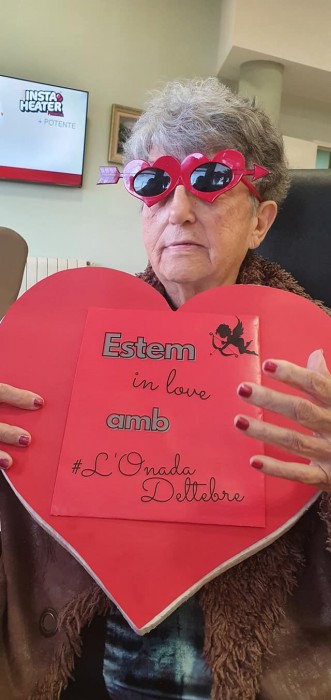 INSTA
HEATER
+ POTENTE
Estem
in love
amb
#L'Onada
Deltebre